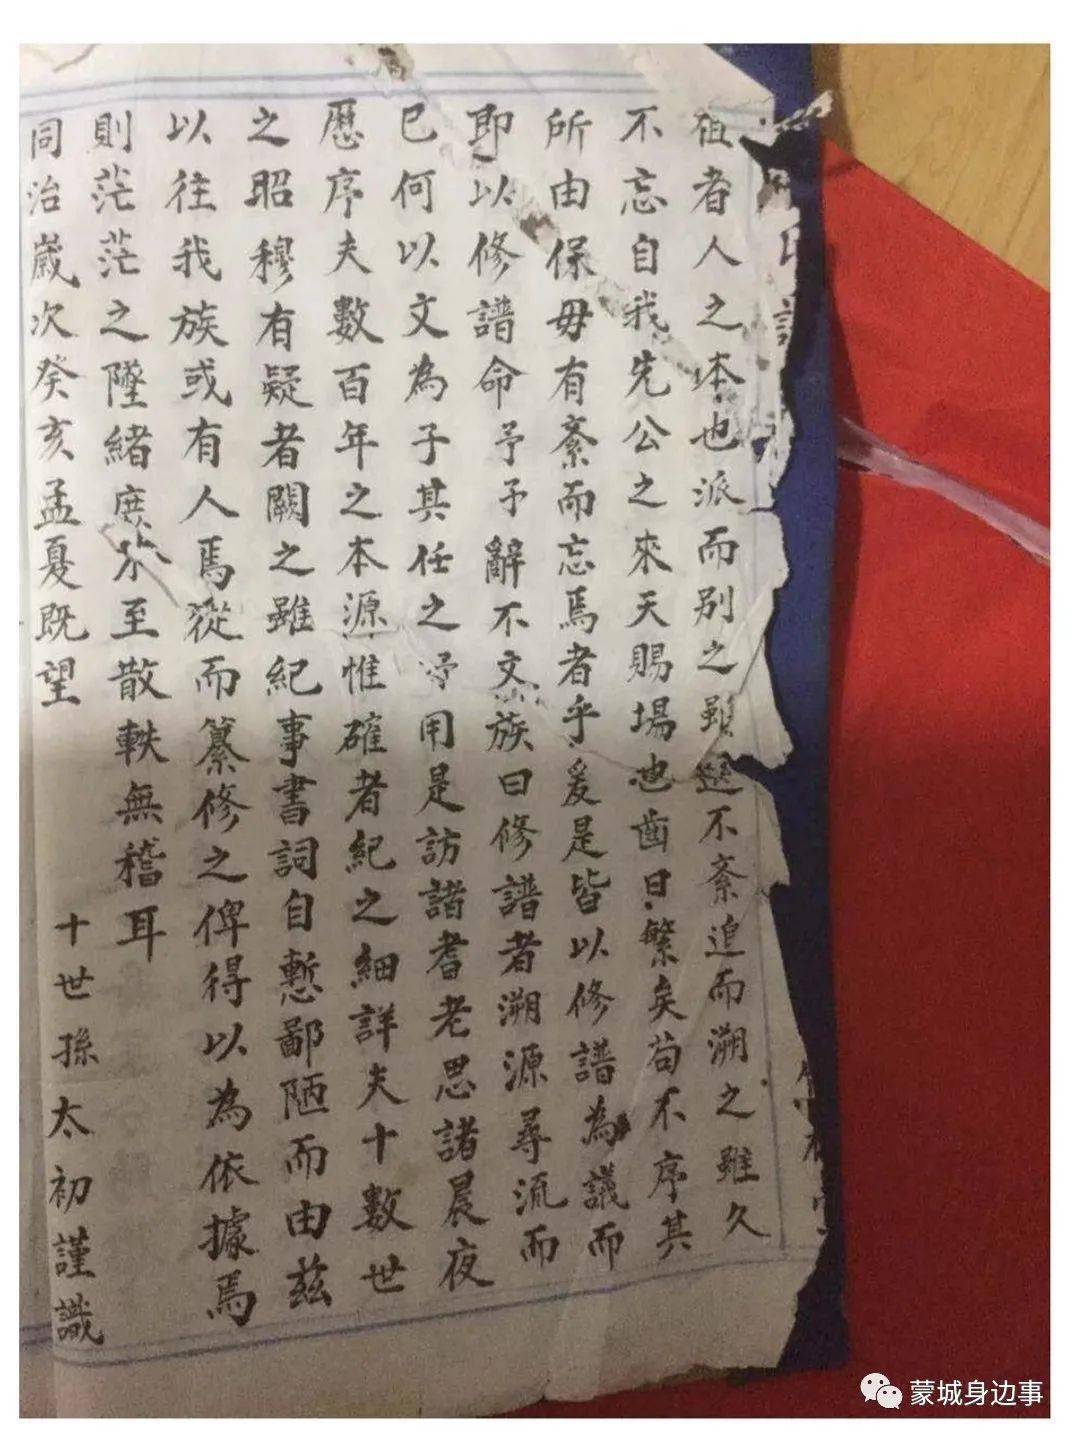 祖者人之本也派而别之雖遥不紊追而溯之雖久
不忘自我先公之來天賜場也齒日繁矣苟不序其
所由保毋有紊而忘焉者乎爰是皆以修譜為議而
即以修譜命予予辭不文族曰修譜者溯源尋流而
已何以文為子其任之予用是訪諸耆老思諸晨夜
歷序夫數百年之本源惟確者紀之細詳夫十數世
之昭穆有疑者闕之雖紀事書詞自慙鄙陋而由茲
以往我族或有人焉從而纂修之俾得以為依據焉
則茫茫之墜緒庶不至散軼無稽耳
同治歲次癸亥孟夏既望 十世孫太初謹識
蒙城身边事